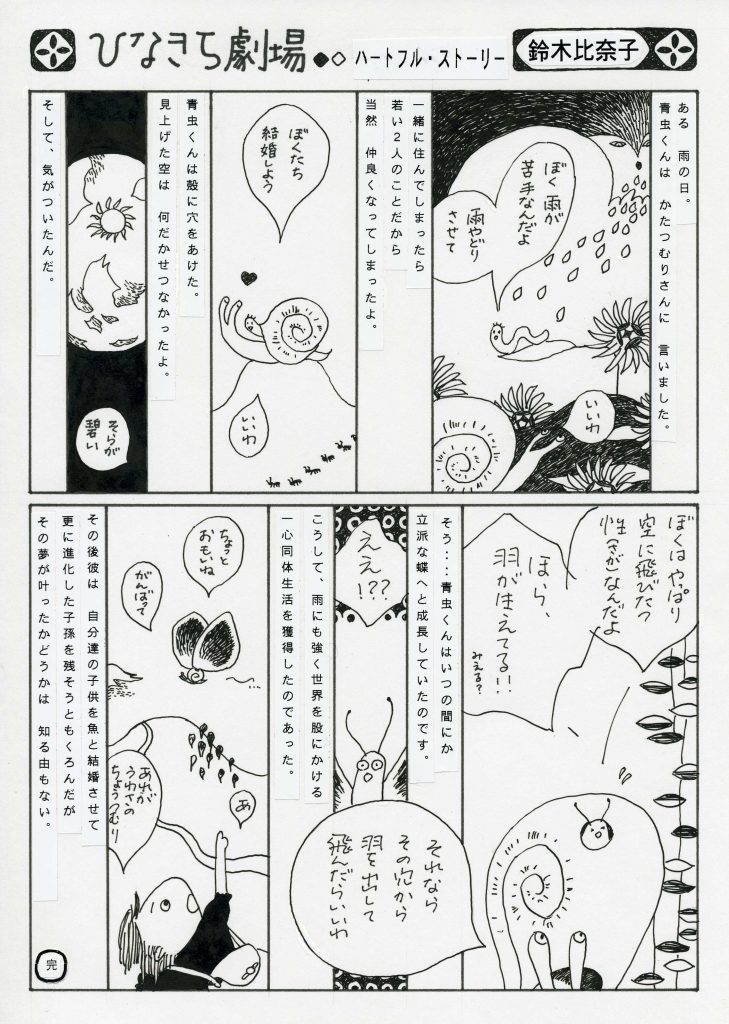 ひなきち劇場
ハートフル・ストーリー
鈴木比奈子
ある 雨の日。
青虫くんは かたつむりさんに 言いました。
ぼく 雨が
苦手なんだよ
雨やどり
させて
いいわ
一緒に住んでしまったら
若い2人のことだから
当然 仲良くなってしまったよ。
ぼくたち
結婚しよう
いいわ
青虫くんは殻に穴をあけた。
見上げた空は 何だかせつなかったよ。
そらが
碧い
そして、気がついたんだ。
ぼくは やっぱり
空に飛びたつ
性(さが)なんだよ
ほら、
羽がはえてる!!
みえる?
そう・・・青虫くんはいつの間にか
立派な蝶へと成長していたのです。
ええ
!??
それなら
その穴から
羽を出して
飛んだらいいわ
こうして、雨にも強く世界を股にかける
一心同体生活を獲得したのであった。
ちょっと
おもいね
がんばって
あ
あれが
うわさの
ちょうつむり
その後彼は 自分達の子供を魚と結婚させて
更に進化した子孫を残そうともくろんだが
その夢が叶ったかどうかは 知る由もない。
完